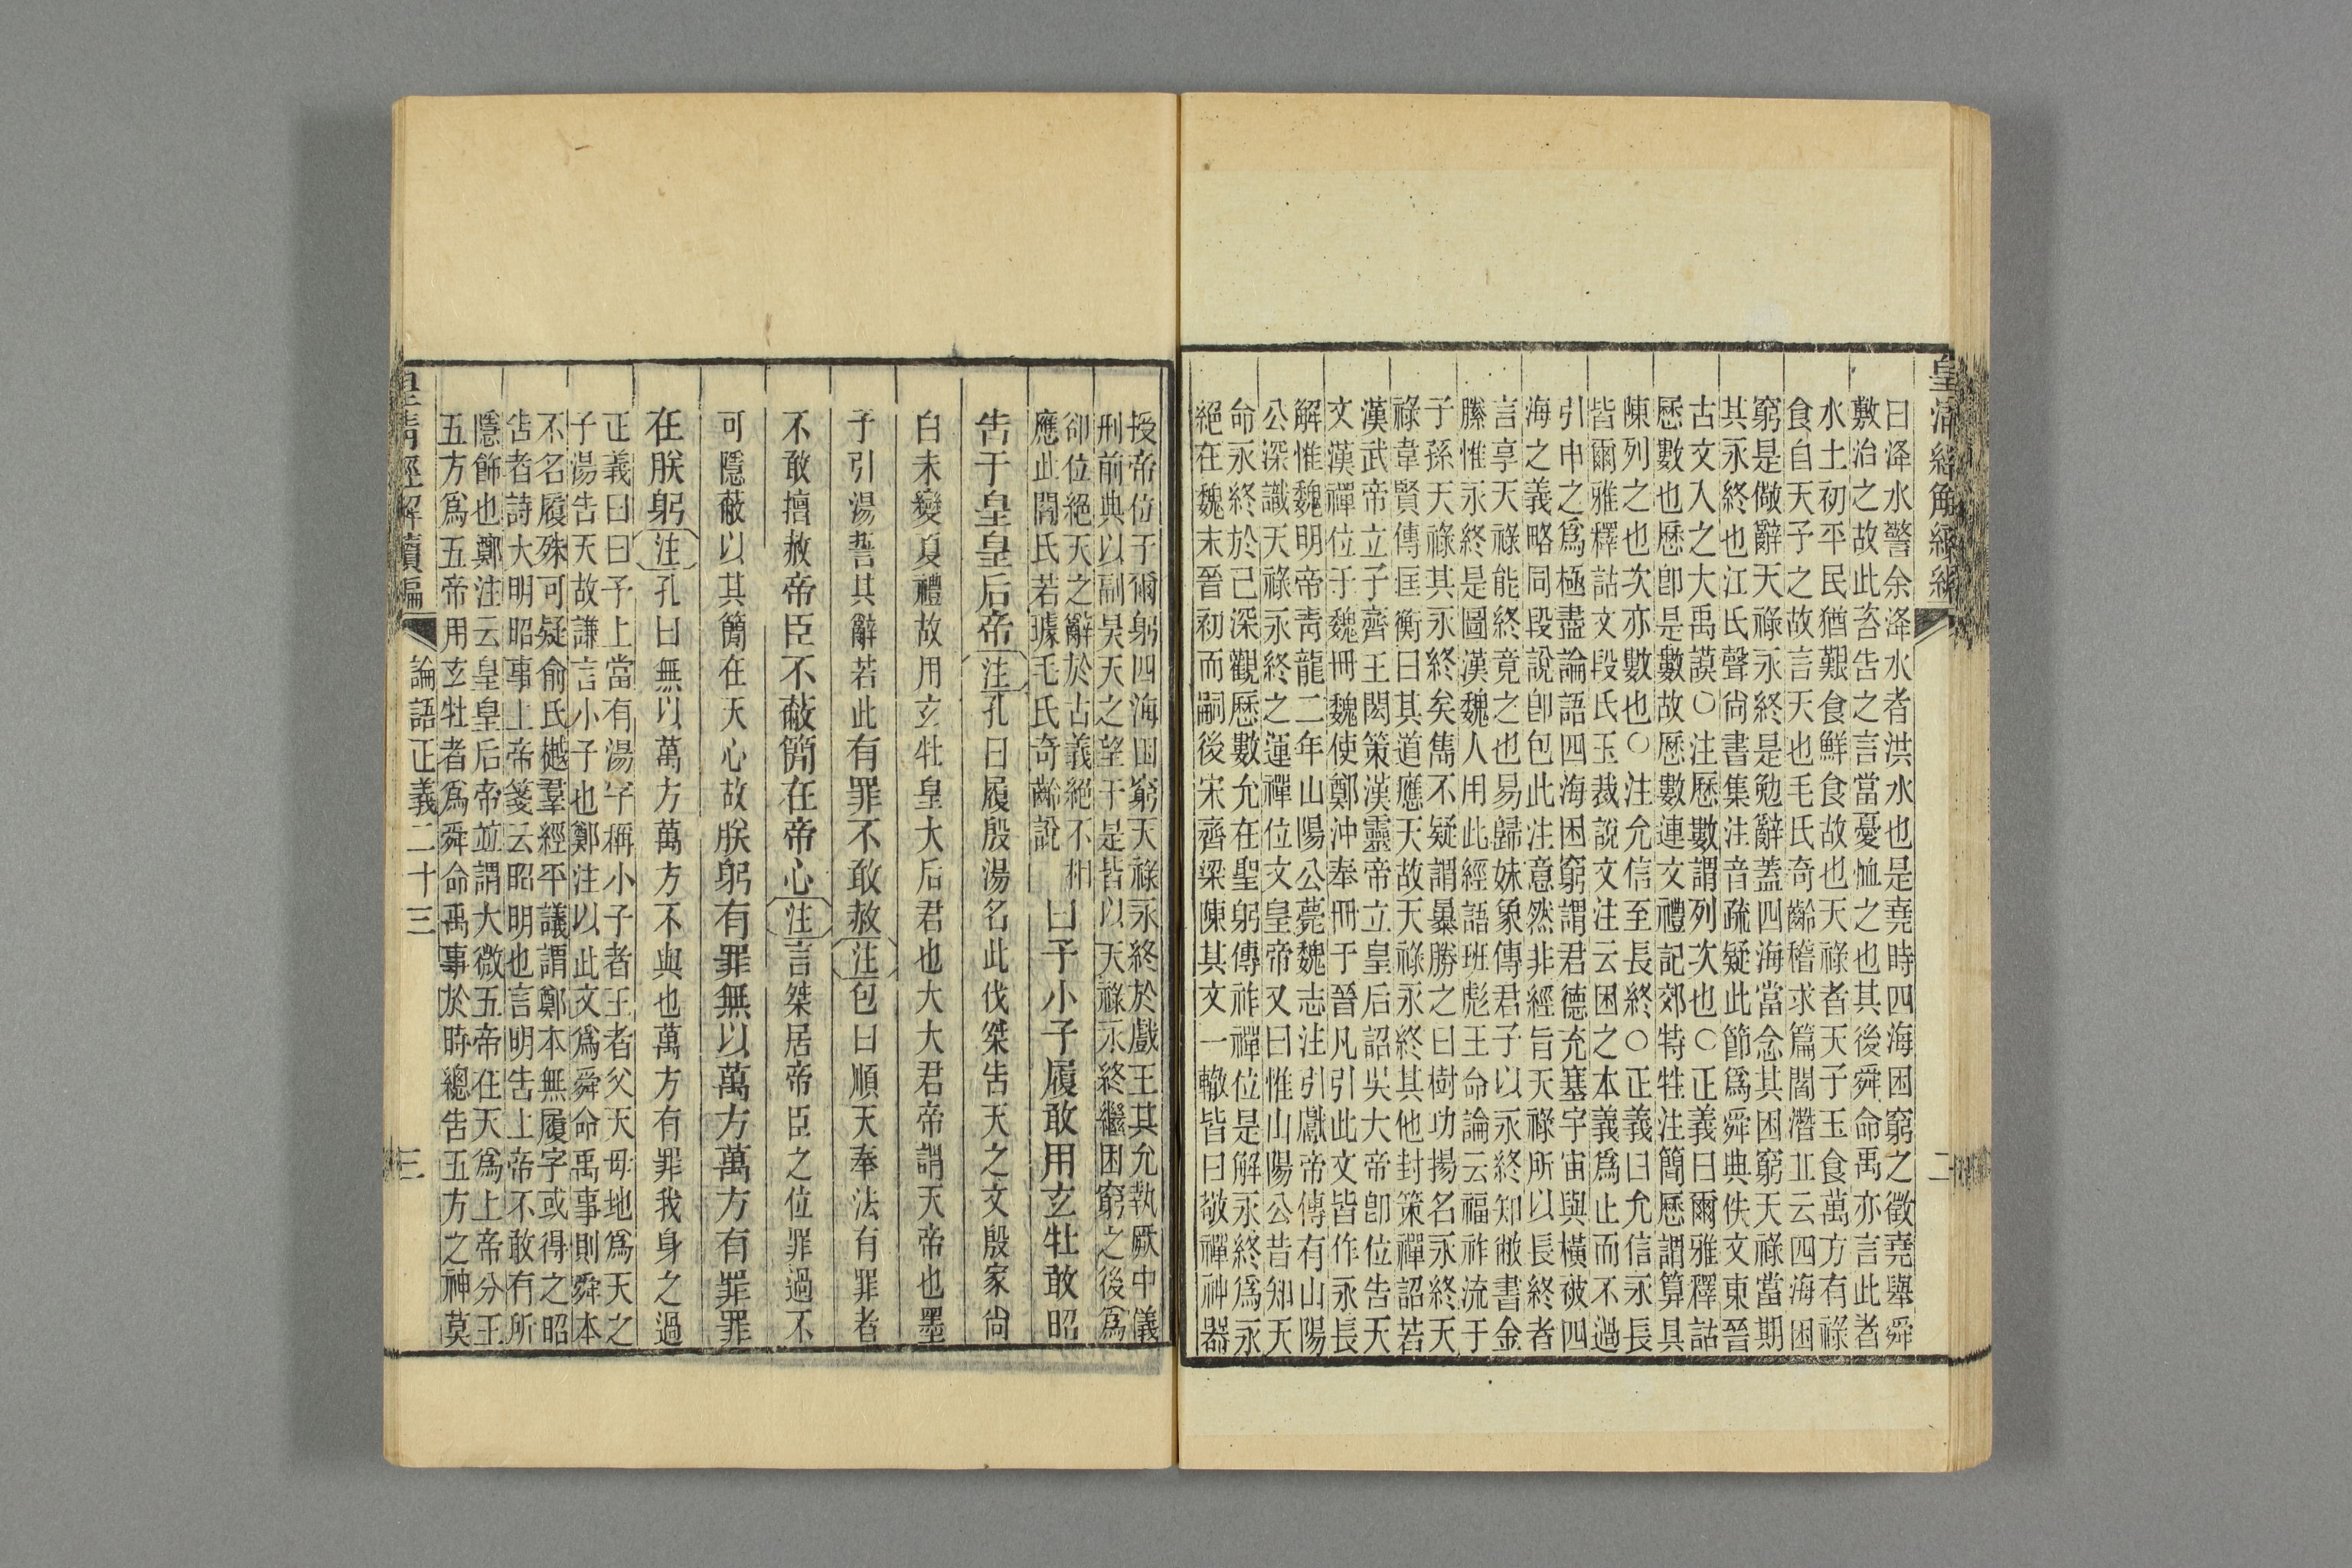 皇清經解續編 二
曰洚水警余洚水者洪水也是堯時四海困窮之徵堯舉舜
敷治之故此咨告之言當憂恤之也其後舜命禹亦言此者
水土初平民猶艱食鮮食故也天祿者天子玉食萬方有祿
食自天子之故言天也毛氏奇齡稽求篇閻潛丘云四海困
窮是儆辭天祿永終是勉辭蓋四海當念其困窮天祿當期
其永終也江氏聲尙書集注音疏疑此節爲舜典佚文東晉
古文入之大禹謨○注歷數謂列次也○正義曰爾雅釋詁
歷數也歷卽是數故歷數連文禮記郊特牲注簡歷謂算具
陳列之也次亦數也○注允信至長終○正義曰允信永長
皆爾雅釋詁文段氏玉裁說文注云困之本義爲止而不過
引申之爲極盡論語四海困窮謂君德充塞宇宙與橫被四
海之義略同段說卽包此注意然非經旨天祿所以長終者
言享天祿能終竟之也易歸妹象傳君子以永終知敝書金
縢惟永終是圖漢魏人用此經語班彪王命論云福祚流于
子孫天祿其永終矣雋不疑謂暴勝之曰樹功揚名永終天
祿韋賢傳匡衡曰其道應天故天祿永終其他封策禪詔若
漢武帝立子齊王閎策漢靈帝立皇后詔吳大帝卽位告天
文漢禪位于魏冊魏使鄭沖奉冊于晉凡引此文皆作永長
解惟魏明帝靑龍二年山陽公薨魏志注引獻帝傳有山陽
公深識天祿永終之運禪位文皇帝又曰惟山陽公昔知天
命永終於己深觀歷數允在聖躬傳祚禪位是解永終爲永
絕在魏末晉初而嗣後宋齊梁陳其文一轍皆曰敬禪神器
授帝位于爾躬四海困窮天祿永終於戲王其允執厥中儀
刑前典以副昊天之望于是皆以天祿永終繼困窮之後爲
卻位絕天之辭於古義絕不相
應此閻氏若璩毛氏奇齡說
曰予小子履敢用玄牡敢昭
告于皇皇后帝注孔曰履殷湯名此伐桀告天之文殷家尙
白未變夏禮故用玄牡皇大后君也大大君帝謂天帝也墨
子引湯誓其辭若此有罪不敢赦注包曰順天奉法有罪者
不敢擅赦帝臣不蔽簡在帝心注言桀居帝臣之位罪過不
可隱蔽以其簡在天心故朕躬有罪無以萬方萬方有罪罪
在朕躬注孔曰無以萬方萬方不與也萬方有罪我身之過
正義曰曰予上當有湯字稱小子者王者父天母地爲天之
子湯告天故謙言小子也鄭注以此文爲舜命禹事則舜本
不名履殊可疑俞氏樾羣經平議謂鄭本無履字或得之昭
告者詩大明昭事上帝箋云昭明也言明告上帝不敢有所
隱飾也鄭注云皇皇后帝並謂大微五帝在天爲上帝分王
五方爲五帝用玄牡者爲舜命禹事於時總告五方之神莫
皇清經解續編 論語正義二十三 三